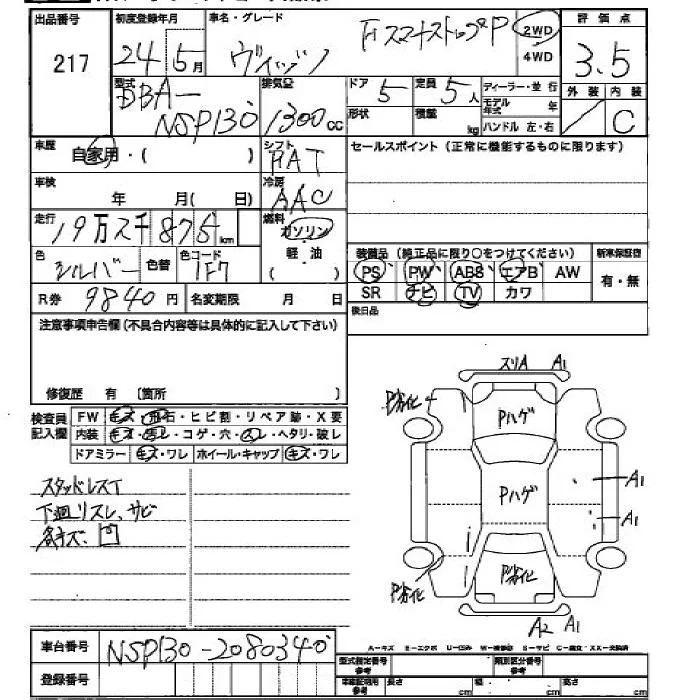 出品番号 初度登録年月 車名・グレード 2WD 評価点
217 24年 5月 ヴィッツ F スマートストップP 4WD 3.5
外装 内装
型式 排気量 ドア 定員 ディーラー・並行
DBA- 5 5人 モデル年式 年 / C
NSP130 1300cc 形状 積載 kg ハンドル 左・右
車歴 シフト セールスポイント(正常に機能するものに限ります)
自家用・( ) FAT
車検 冷房
年 月( 日) AAC
走行 燃料
19万2千875km ガソリン
色 色替 色コード 軽油 装備品(純正品に限り○をつけてください) 新車保証書
シルバー 1F7 ( ) PS PW ABS エアB AW 有・無
R券 9840円 名変期限 月 日 SR ナビ TV カワ
後日品
注意事項申告欄(不具合内容等は具体的に記入して下さい)
修復歴 有 〔箇所 〕
検査員 FW キズ・飛石・ヒビ割・リペア跡・X要
記入欄 内装 キズ・汚レ・コゲ・穴・スレ・ヘタリ・破レ
ドアミラー キズ・ワレ ホイール・キャップ キズ・ワレ
スタッドレスT
下廻リスレ、サビ
各キズ、凹
スリA A1
P劣化
Pハゲ
Pハゲ
A1
A1
P劣化
P劣化
A2 A1
車台番号 NSP130-2080340
登録番号
A-キズ E-エクボ U-凹み W-補修跡 S-サビ C-腐食
型式指定番号 参考 類別区分番号 参考
車検証記載 参考 長さ cm 幅 cm 高さ cm